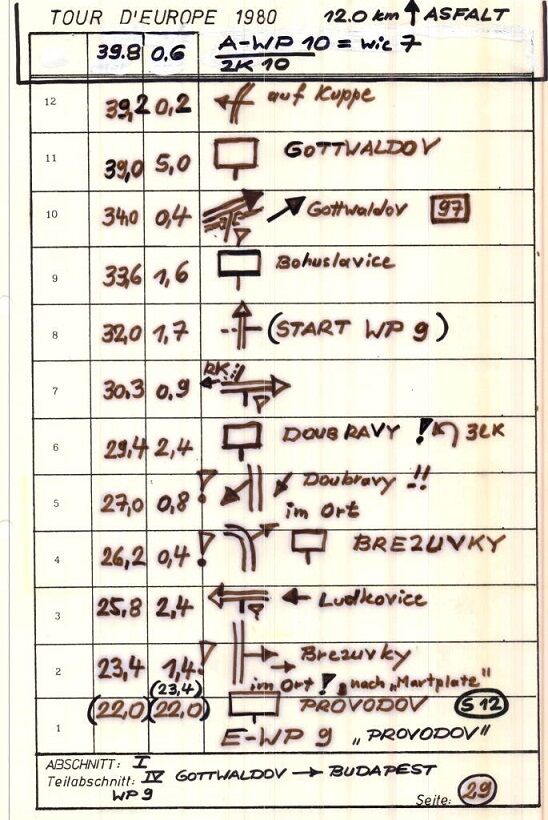 TOUR D'EUROPE 1980 12.0 km ASFALT
39.8 0.6 A-WP 10 = wie 7
ZK 10
12 39,2 0,2 auf Kuppe
11 39,0 5,0 GOTTWALDOV
10 34,0 0,4 Gottwaldov 97
9 33,6 1,6 Bohuslavice
8 32,0 1,7 (START WP 9)
7 30.3 0,9 RK
6 29,4 2,4 DOUBRAVY ! 3LK
5 27,0 0,8 ! Doubravy !!
im Ort
4 26,2 0,4 ! BREZUVKY
3 25,8 2,4 Ludkovice
2 23,4 1,4 ! Brezuvky
(23,4) im Ort ! nach „Martplate"
1 (22,0) (22,0) PROVODOV S12
E-WP 9 „PROVODOV"
ABSCHNITT: I
Teilabschnitt: IV GOTTWALDOV → BUDAPEST
WP 9 Seite: 29